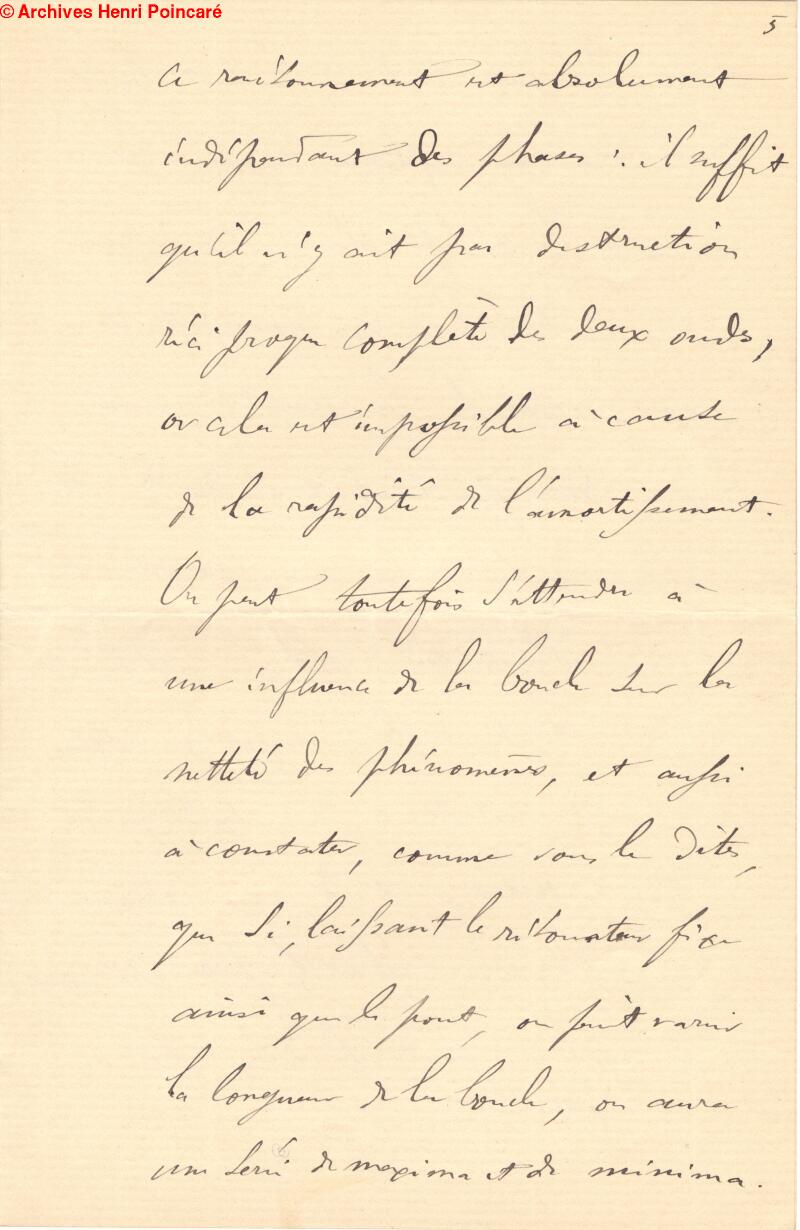 © Archives Henri Poincaré
5
Ce raisonnement est absolument
indépendant des phases : il suffit
qu'il n'y ait pas destruction
réciproque complète des deux ondes,
or cela est impossible à cause
de la rapidité de l'amortissement.
On peut toutefois s'attendre à
une influence de la boucle sur la
netteté des phénomènes, et aussi
à constater, comme vous le dites,
que si, laissant le résonateur fixe
ainsi que le pont, on fait varier
la longueur de la boucle, on aura
une série de maxima et de minima.